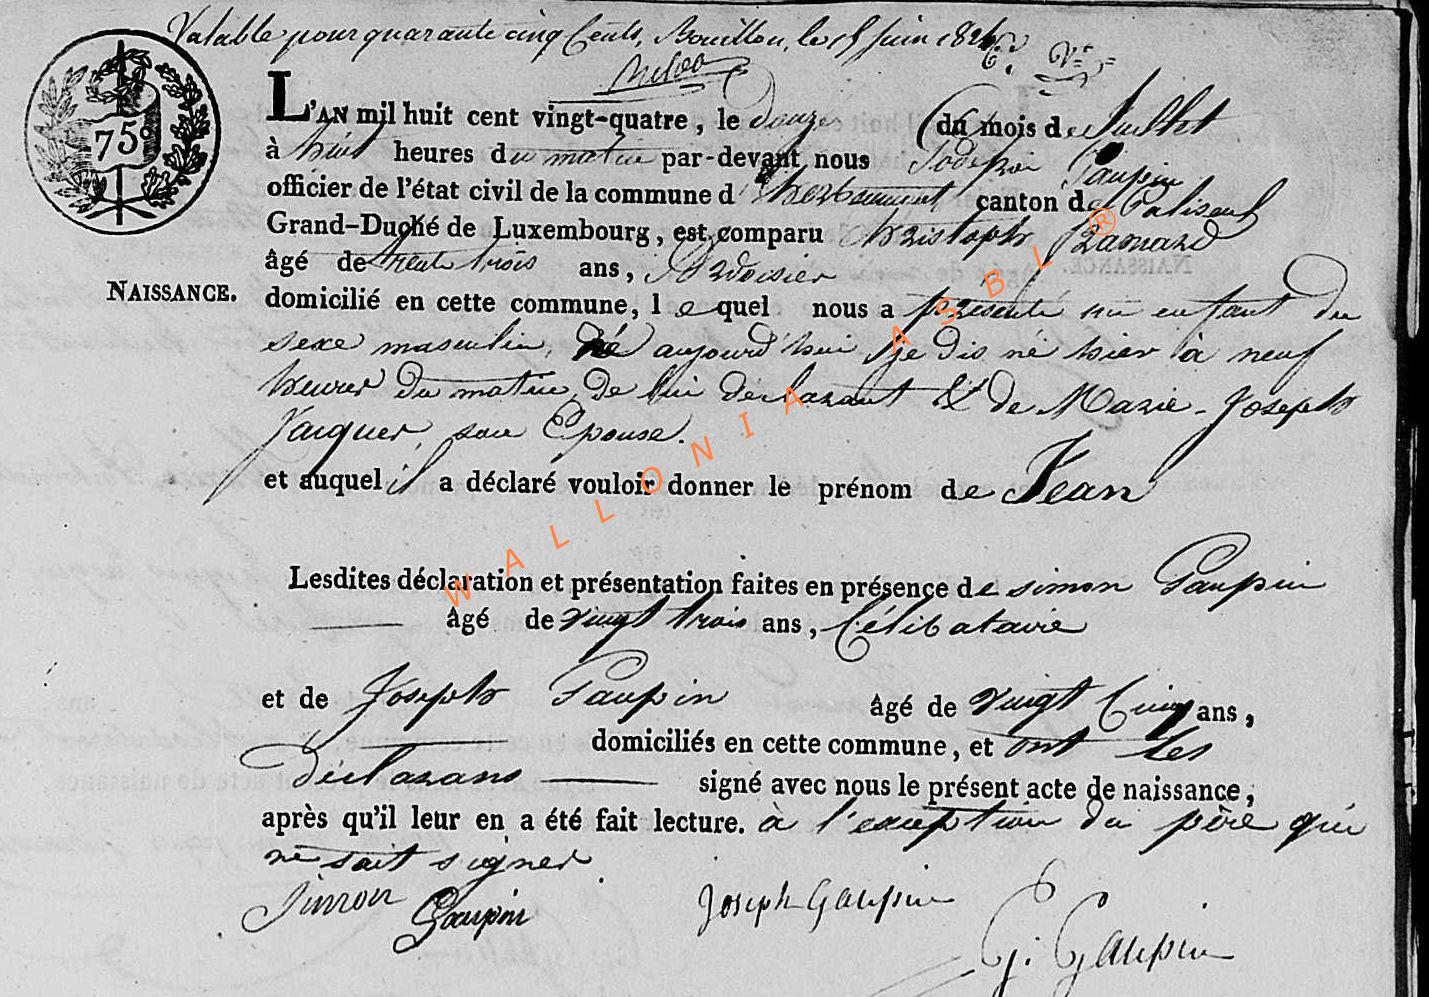 Valable pour quarante cinq Cents, Bouillon, le 15 juin 1824
75 c
L'AN mil huit cent vingt-quatre, le douze du mois de Juillet
à huit heures du matin par-devant nous Godefroi Gaupin
officier de l'état civil de la commune d'herbeumont canton de Paliseul
Grand-Duché de Luxembourg, est comparu Christophe
âgé de trente trois ans, Ardoisier
NAISSANCE.
domicilié en cette commune, lequel nous a présenté un enfant du
sexe masculin, né aujourd'hui je dis né hier à neuf
heures du matin, de lui déclarant & de Marie-Joseph
Jacques, son Epouse.
et auquel il a déclaré vouloir donner le prénom de Jean
Lesdites déclaration et présentation faites en présence de simon Gaupin
âgé de vingt trois ans, Célibataire
et de Joseph Gaupin âgé de vingt Cinq ans,
domiciliés en cette commune, et ont les
déclarans signé avec nous le présent acte de naissance,
après qu'il leur en a été fait lecture. à l'exception du père qui
ne sait signer.
Simon Gaupin Joseph Gaupin
G. Gaupin
WALLONIA ASBL ®